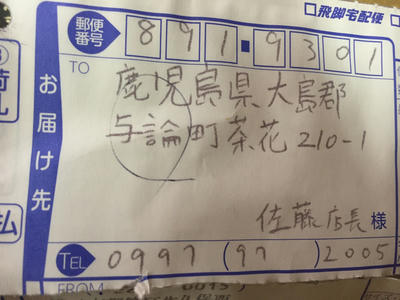 飛脚宅配便
郵便番号 891-9301
お届け先
TO
鹿児島県大島郡
与論町茶花210-1
佐藤店長様
TEL 0997(97)2005
FROM